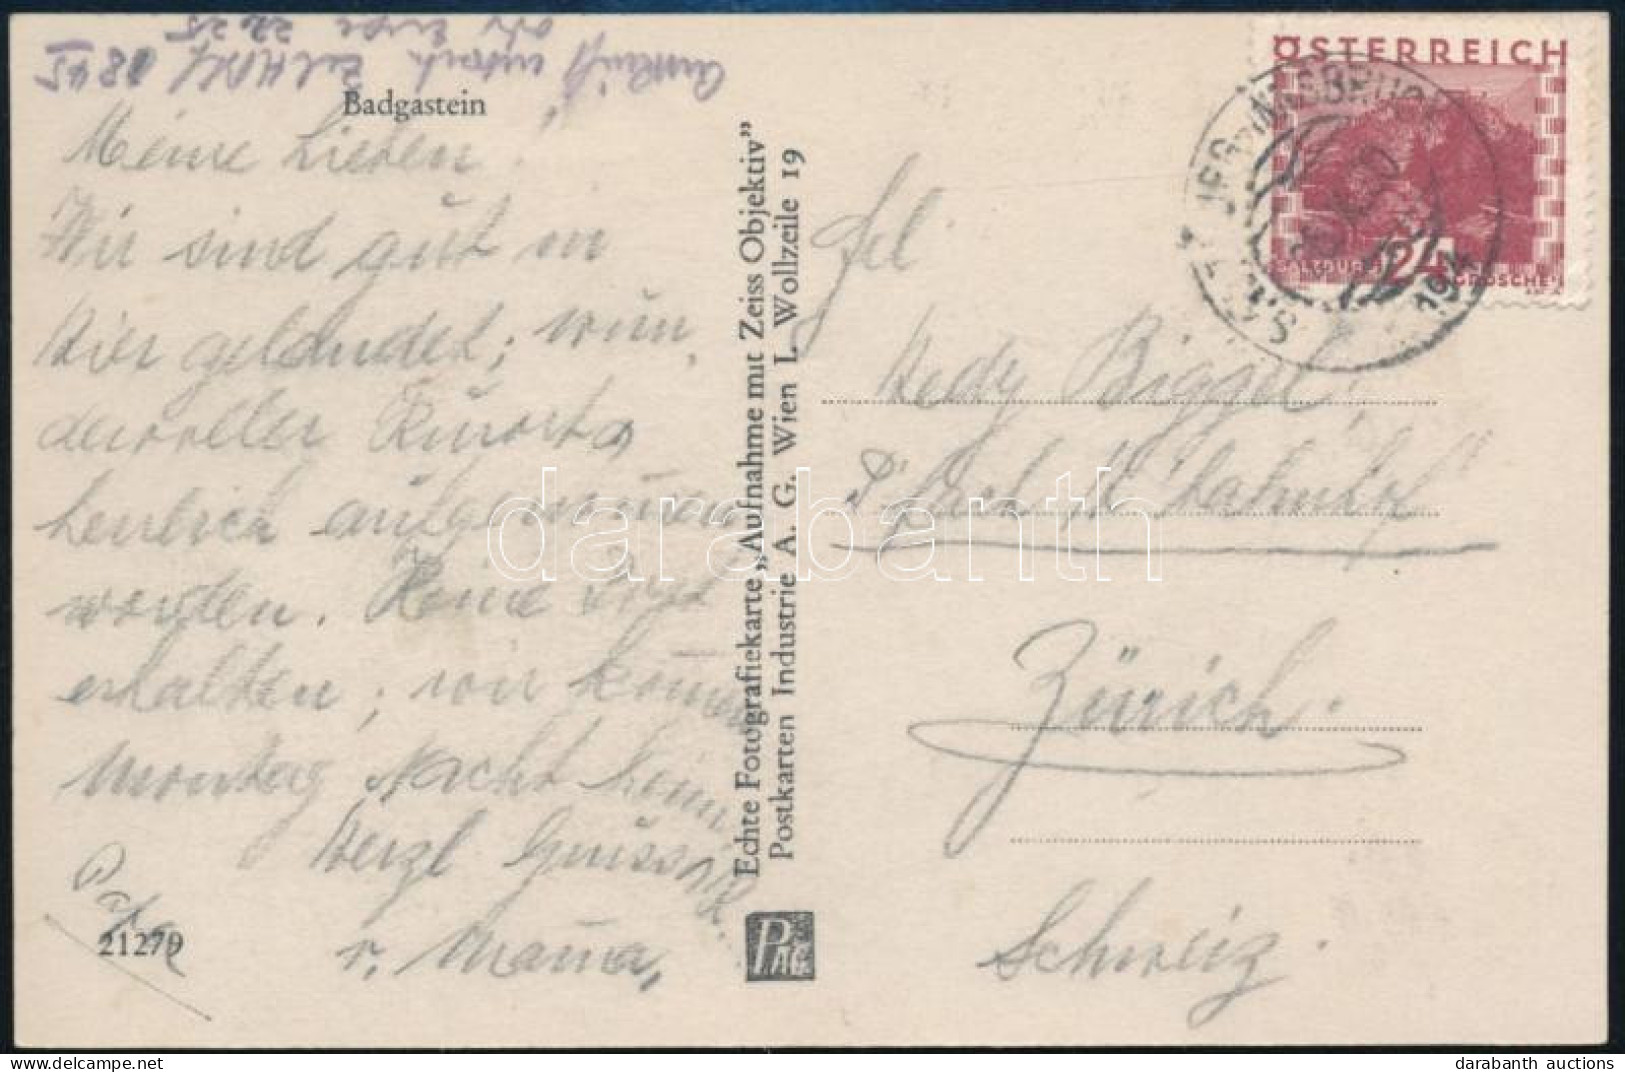 Ankunft Zürich 18 45
22 25
Badgastein
Meine Lieben!
Wir sind gut in
hier gelandet; wun
dervoller Kurort,
herrlich aufgenommen
worden. Keine Post
erhalten; wir kommen
Montag Nacht heim
Herzl Grüsse
Papa
u. Mama,
21279
Echte Fotografiekarte „Aufnahme mit Zeiss Objektiv”
Postkarten Industrie A. G. Wien I. Wollzeile 19
PAG
ÖSTERREICH
24
SALZBURG
GROSCHEN
INNSBRUCK
Frl
Hedy Biggel,
Zürich.
Schweiz.
darabanth
darabanth auctions